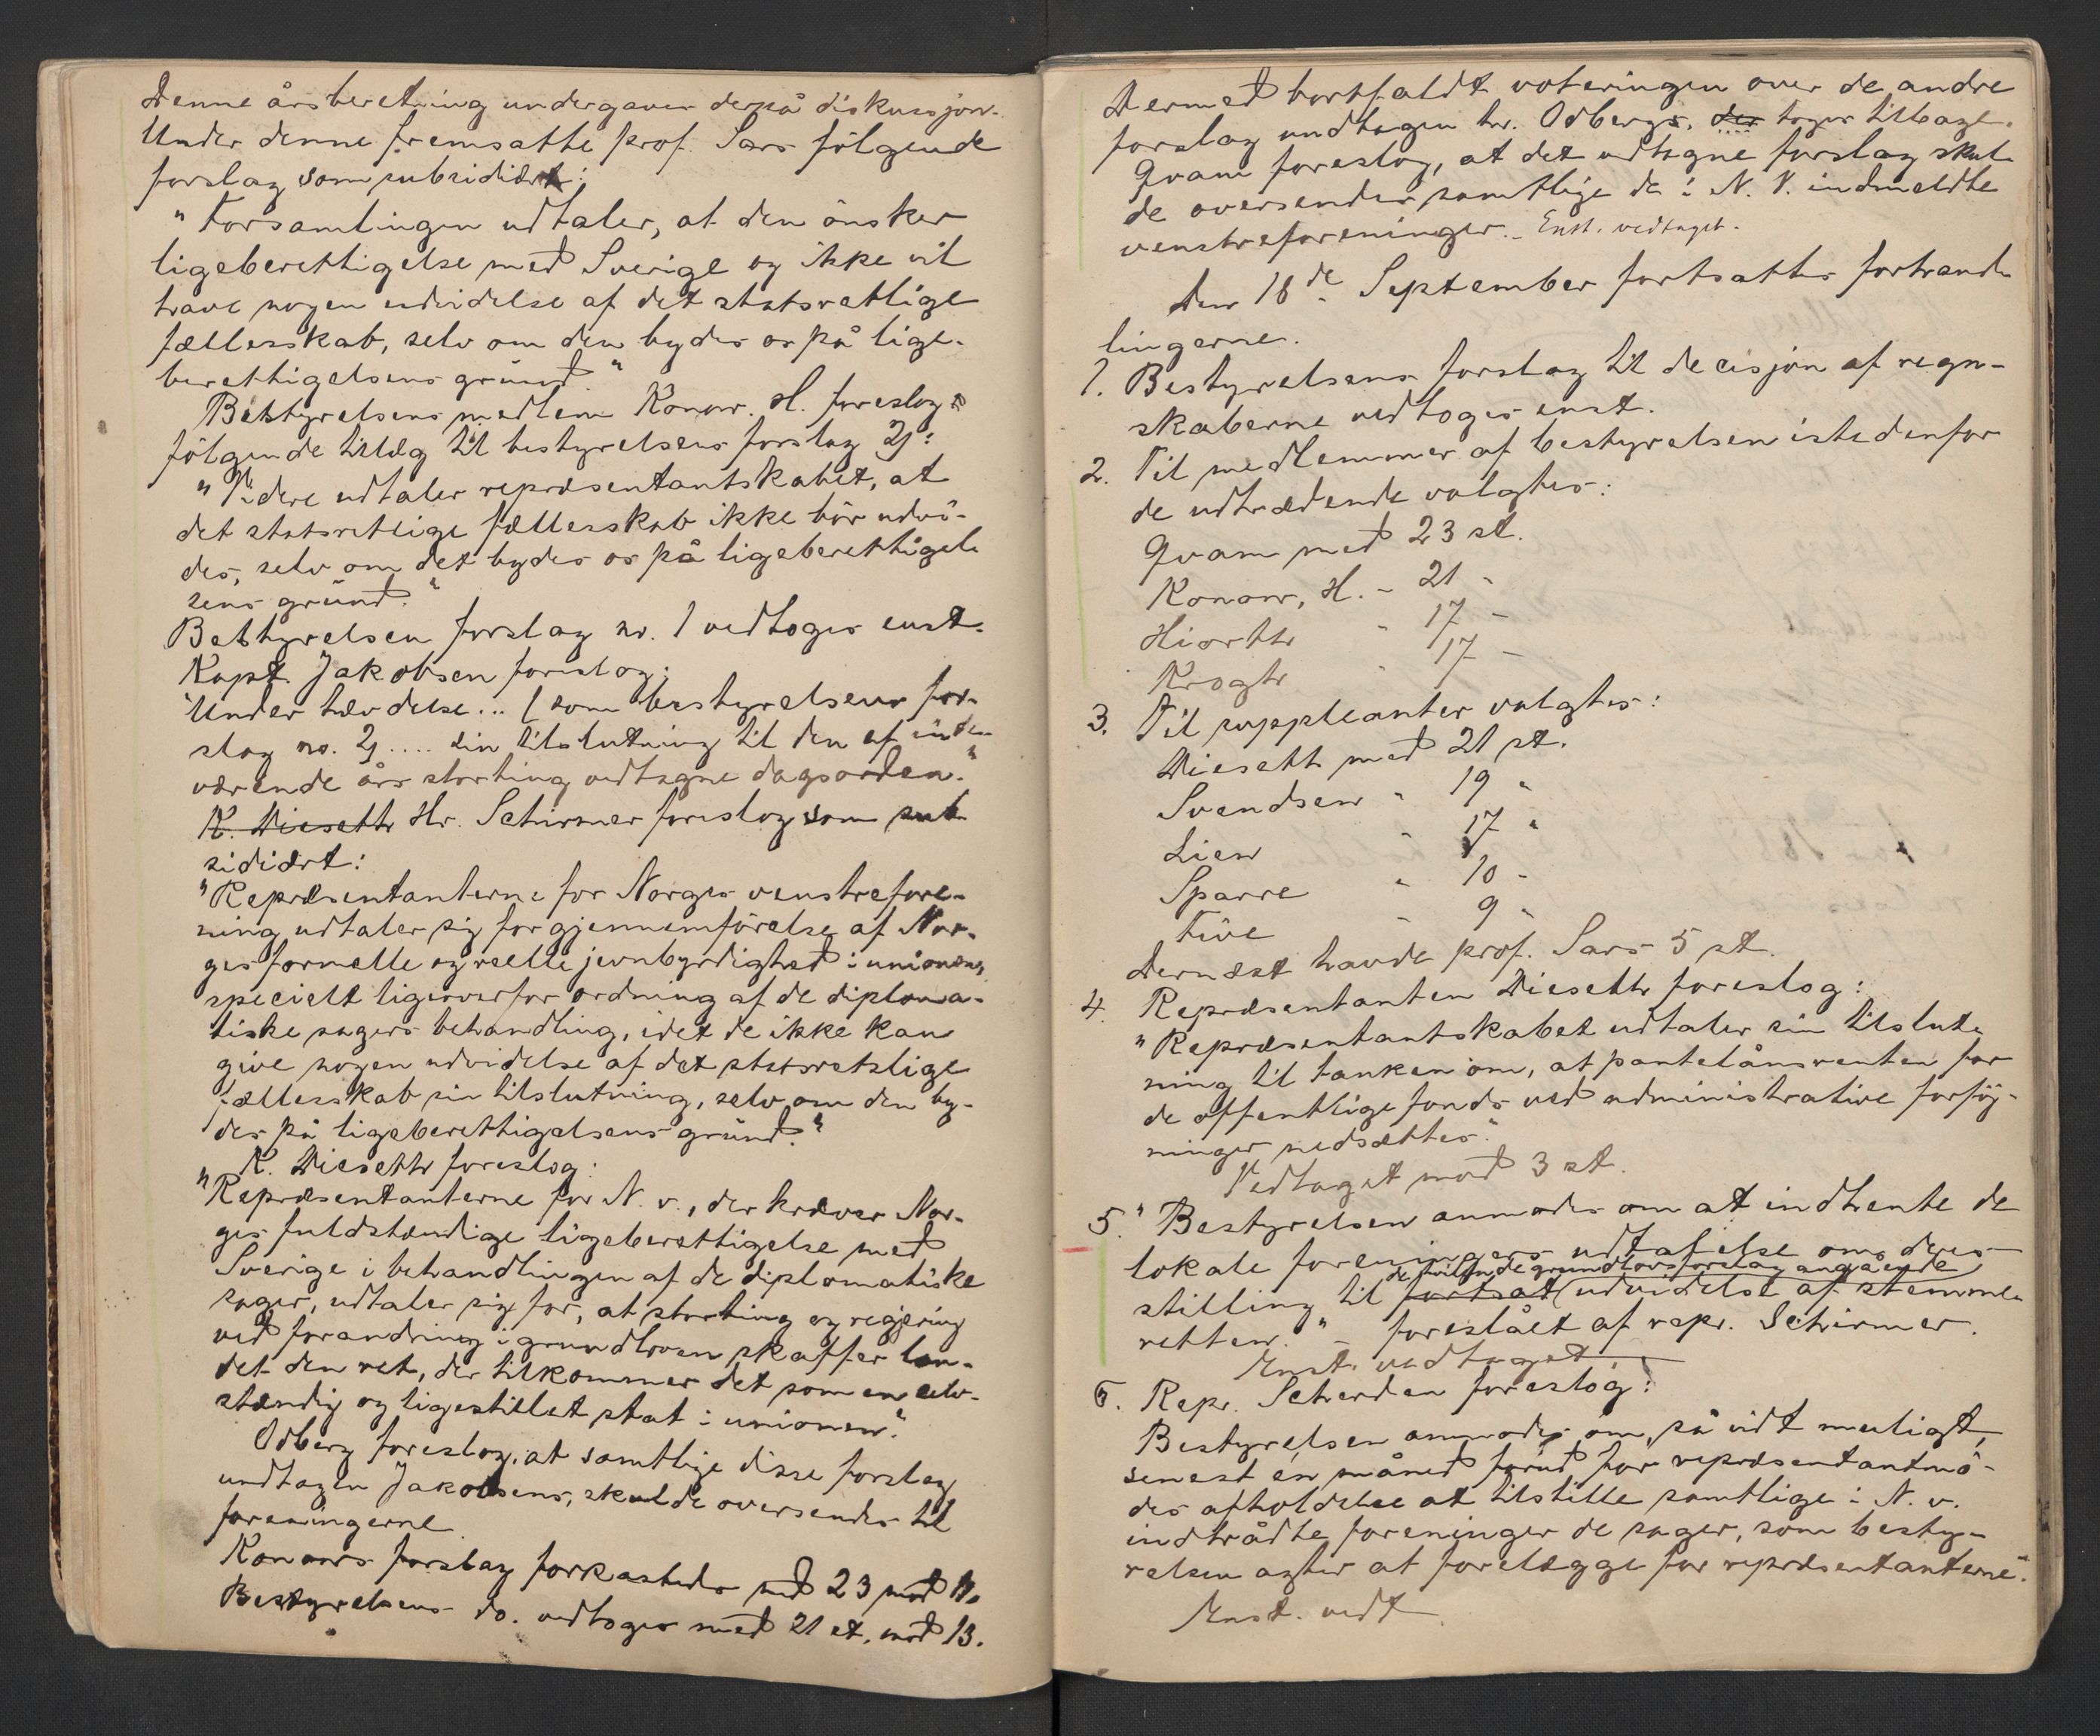 Denne årsberetning undergaves derpå diskussjon.
Under denne fremsatte prof. Sars følgende
forslag som subsidiært:
"Forsamlingen udtaler, at den ønsker
ligeberettigelse med Sverige og ikke vil
have nogen udvidelse af det statsretlige
fællesskab, selv om den bydes os på lige-
berettigelsens grund."
Bestyrelsens medlem Konow. H. foreslog
følgende tillæg til bestyrelsens forslag 2):
"Videre udtaler repræsentantskabet, at
det statsretlige fællesskab ikke bør udvi-
des, selv om det bydes os på ligeberettigel-
sens grund."
Bestyrelsen forslag no. 1 vedtoges enst.
Kapt. Jakobsen foreslog:
"Under hævdelse... (som bestyrelsens for-
slag no. 2).... sin tilslutning til den af inde-
værende års storting vedtagne dagsorden."
K. Dieseth Hr. Schirmer foreslog som sub
sidiært:
"Repræsentanterne for Norges venstrefore-
ning udtaler sig for gjennemførelse af Nor-
ges formelle og reelle jevnbyrdighed i unionen,
specielt ligeoverfor ordning af de diploma-
tiske sagers behandling, idet de ikke kan
give nogen udvidelse af det statsretslige
fællesskab sin tilslutning, selv om den by-
des på ligeberettigelsens grund."
K. Dieseth foreslog:
"Repræsentanterne for N. v., der kræver Nor-
ges fuldstændige ligeberettigelse med
Sverige i behandlingen af de diplomatiske
sager, udtaler sig for, at storting og regjering
ved forandring i grundloven skaffer lan-
det den ret, der tilkommer det som en selv-
stændig og ligestillet stat i unionen."
Odberg foreslog, at samtlige disse forslag
undtagen Jakobsens, skulde oversendes til
foreningerne
Konows forslag forkastedes med 23 mod 11.
Bestyrelsens do. vedtoges med 21 st. mod 13.
Dermed bortfaldt voteringen over de andre
forslag undtagen hr. Odbergs, der toges tilbage.
Qvam foreslog, at det vedtagne forslag skul-
de oversendes samtlige de i N. V. indmeldte
venstreforeninger. - Enst. vedtaget.
Den 18de September fortsattes forhand-
lingerne.
1. Bestyrelsens forslag til decisjon af regn-
skaberne vedtoges enst.
2. Til medlemmer af bestyrelsen istedenfor
de udtrædende valgtes:
Qvam med 23 st.
Konow, H. - 21 -
Hiorth " 17 -
Krogh " 17 -
3. Til suppleanter valgtes:
Dieseth med 21 st.
Svendsen " 19 "
Lien " 17 "
Sparre " 10 "
Five " 9 "
Dernæst havde prof. Sars 5 st.
4. Repræsentanten Dieseth foreslog:
"Repræsentantskabet udtaler sin tilslut-
ning til tanken om, at pantelånsrenten for
de offentlige fonds ved administrative forføj-
ninger nedsættes."
Vedtaget mod 3 st.
5. "Bestyrelsen anmodes om at indhente de
lokale foreningers udtalelse om deres
de hvilende grundlovsforslag angående
stilling til fortsat udvidelse af stemme-
retten." - foreslået af repr. Schirmer.
Enst. vedtaget
6. Repr. Scherden foreslog:
Bestyrelsen anmodes om, så vidt muligt,
senest én måned forud for repræsentantmø-
des afholdelse at tilstille samtlige i N. v.
indtrådte foreninger de sager, som besty-
relsen agter at forelægge for repræsentanterne".
Enst. vedt.